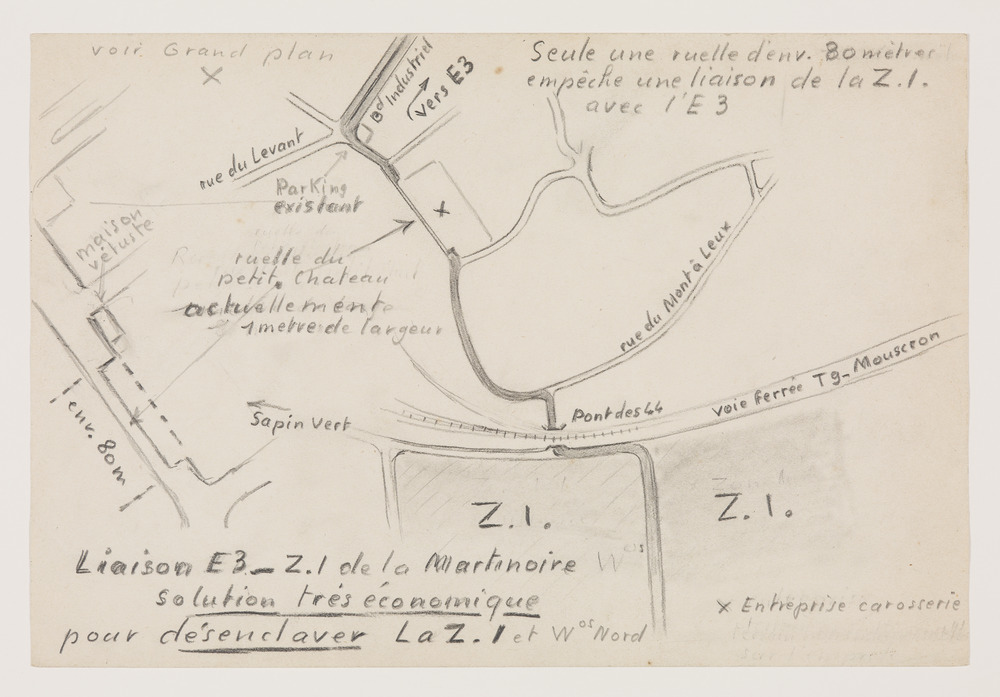 voir Grand plan
X
Bd Industriel
vers E3
Seule une ruelle d'env. 80 mètres
empêche une liaison de la Z.I.
avec l'E 3
rue du Levant
Parking
existant
X
maison
vétuste
ruelle du
petit Chateau
actuellement
1 metre de largeur
rue du Mont à Leux
env. 80m
Sapin Vert
Pont des 44
voie ferrée Tg-Mouscron
Z.I.
Z.I.
Liaison E3 - Z.I de la Martinoire Wos
solution très économique
pour désenclaver La Z.I et Wos Nord
X Entreprise carosserie